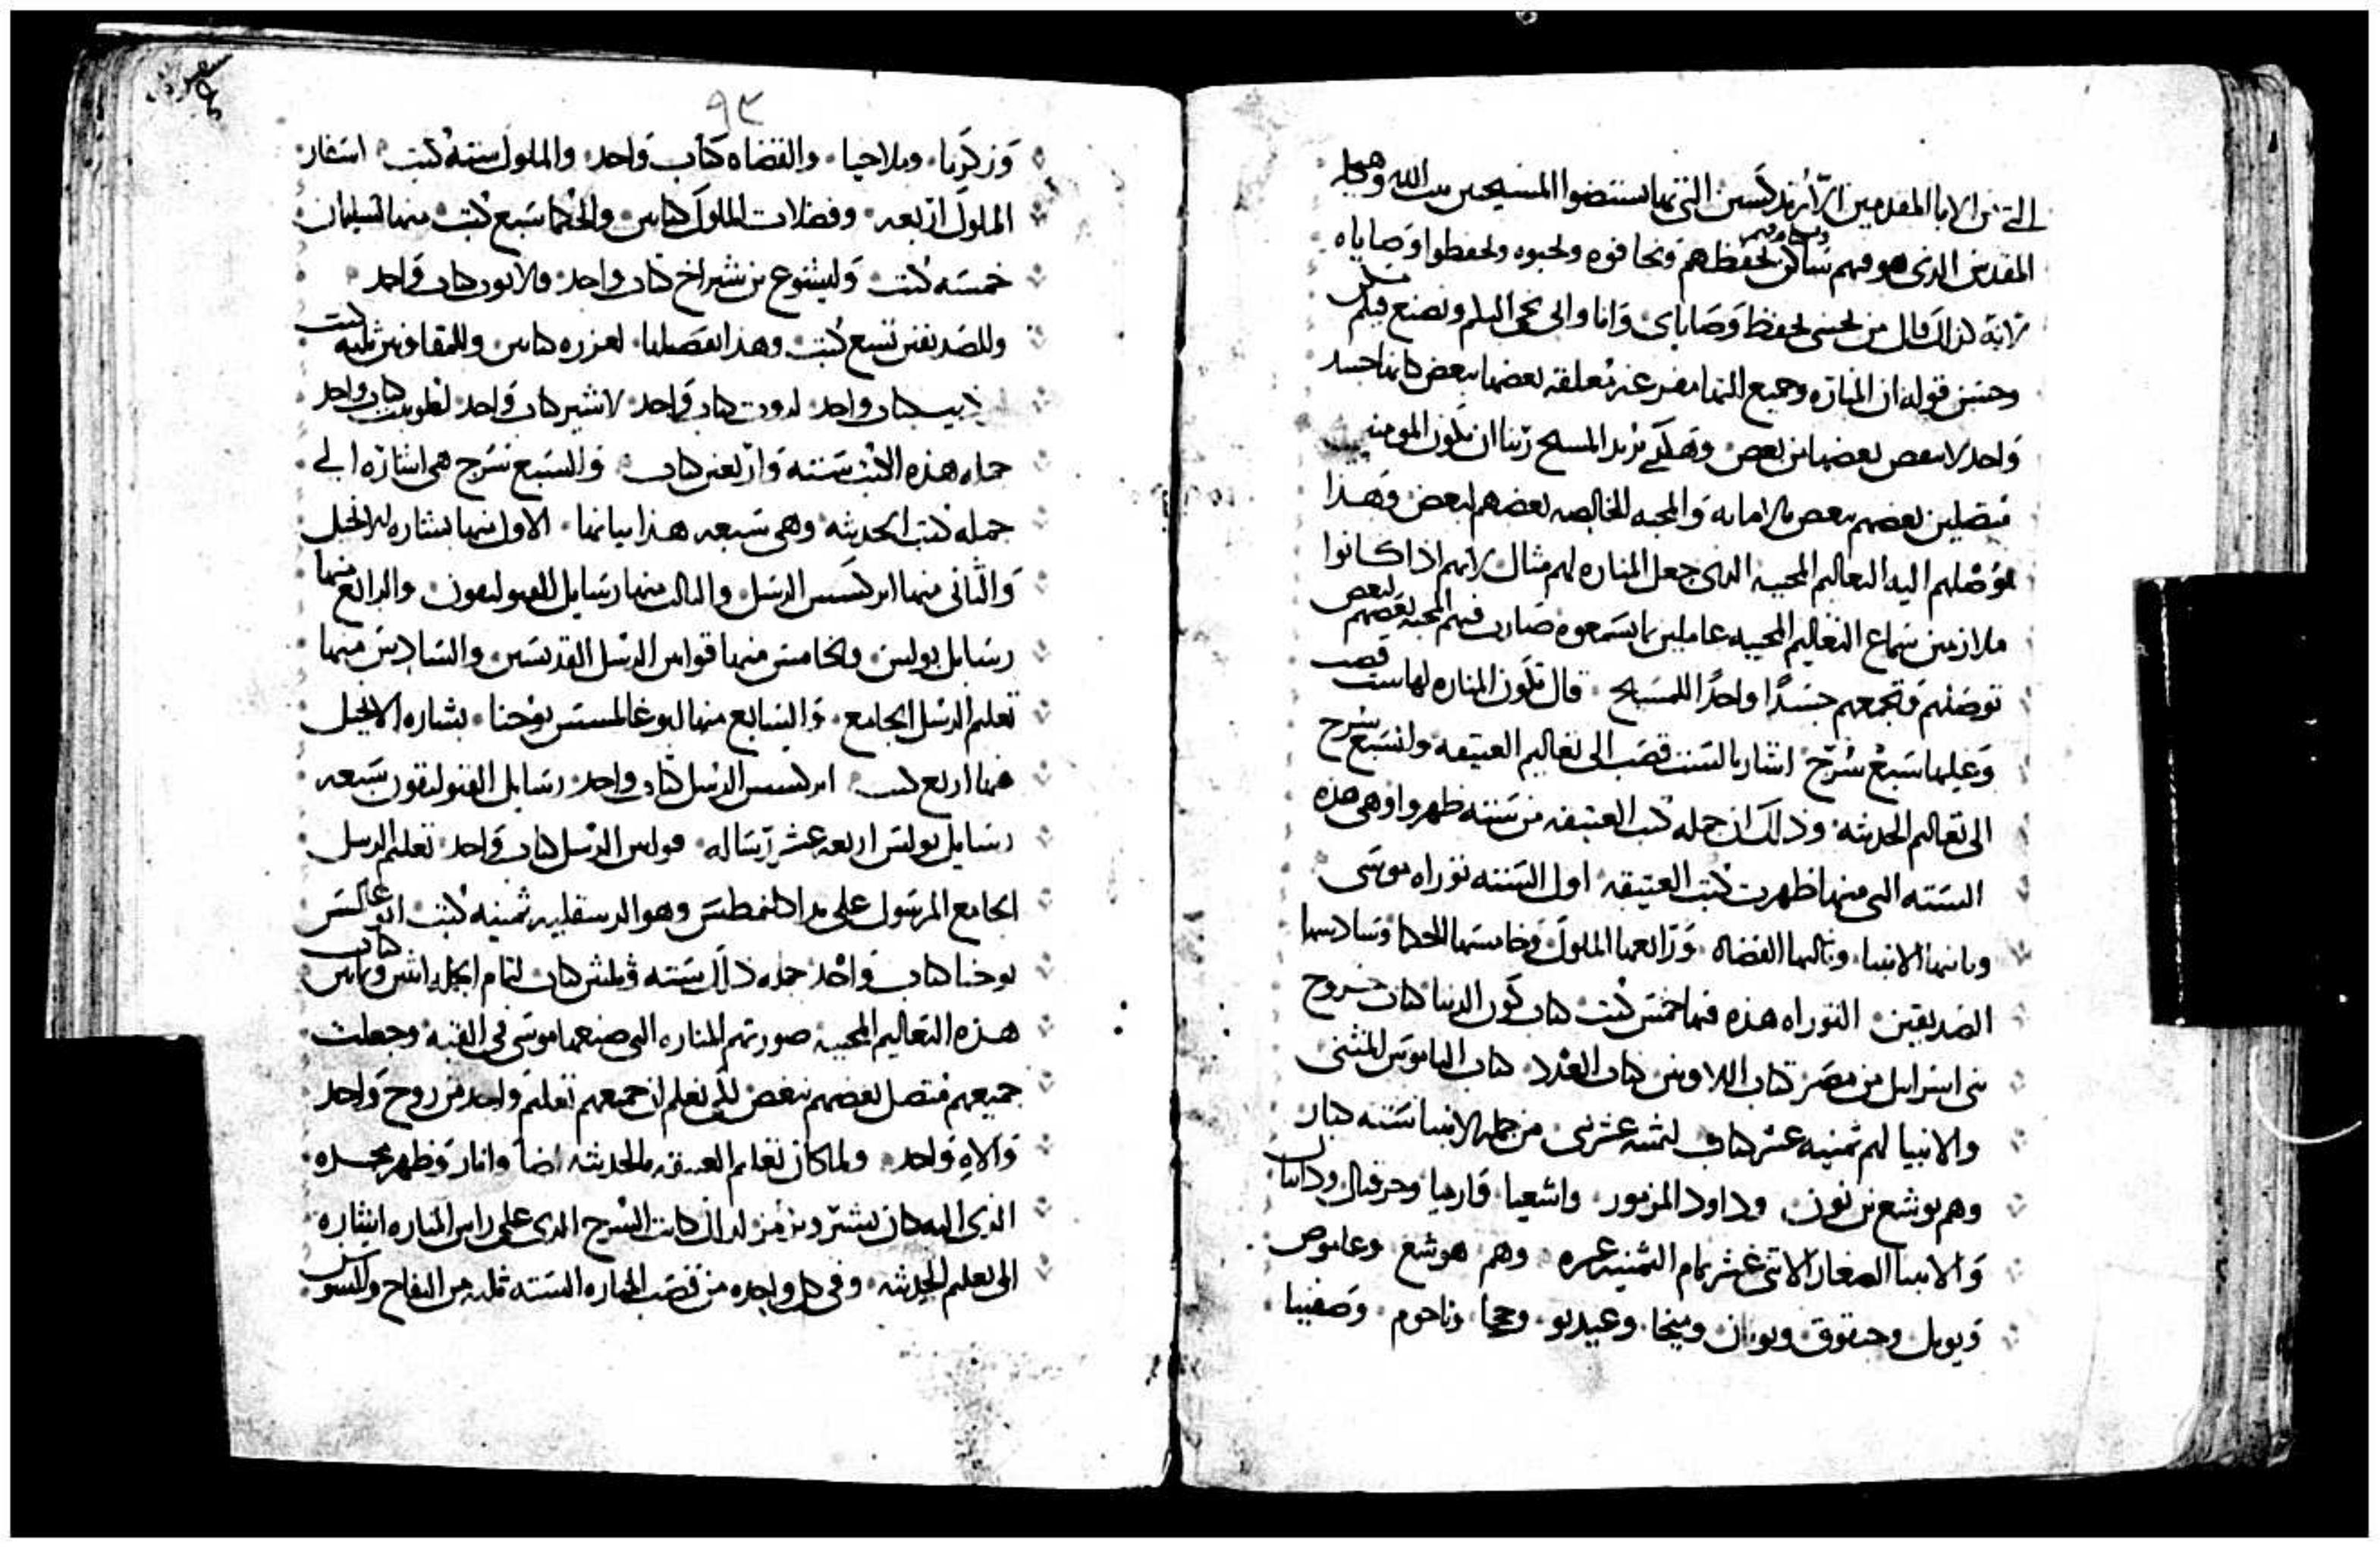 الآبا المقدمين الأرتدكسين التي بها استضوا المسيحين بيت الله وهيكله
المقدس الذي هو فيهم ساكن لحفظهم وبخافوه ولحبوه ولحفظوا وصاياه
لانه كذلك قال من يحبني يحفظ وصاياي وانا وابي نجي اليكم ونصنع فيكم مسكن
وحسن قوله ان المناره وجميع التها مفرغه متعلقه بعضها ببعض كانها جسد
واحد لا بعض بعضها من بعض وهكدي يريد المسيح ربنا ان يكون المومنين
متصلين بعضهم ببعض بالامانه والمحبه الخالصه بعضهم لبعض وهذا
يوصلهم اليه التعاليم المحييه الذي جعل المناره لهم مثال لانهم اذا كانوا
ملازمين سماع التعاليم المحييه عاملين بما يسمعوه صارت فيهم المحبه بعضهم لبعض
توصلهم وتجمعهم جسدًا واحدًا للمسيح قال تكون المناره لها ست قصب
وعليها سبع سرج اشار بالست قصب الى تعاليم العتيقه والسبع سرج
الى تعاليم الحديثه وذلك ان جمله كتب العتيقه من سته ظهروا وهي هذه
السته التي منها ظهرت كتب العتيقه اول السته توراه موسى
وثانيها الانبيا وثالثها القضاه ورابعها الملوك وخامسها الحكما وسادسها
الصديقين التوراه هذه فيها خمس كتب كتاب كون الدنيا كتاب خروج
بني اسرايل من مصر كتاب اللاويين كتاب العدد كتاب الناموس المثنى
والانبيا لهم ثمنيه عشر كتاب لثمنيه عشر نبي من جمله الانبيا سته كبار
وهم يوشع بن نون وداود المزمور واشعيا وارميا وحزقيال ودانيال
والانبيا الصغار الاثنى عشر تمام الثمنيه عشره وهم هوشع وعاموص
ويويل وحبقوق ويونان وميخا وعبديو وحجا وناحوم وصفنيا
٩٣
وزكريا وملاخيا والقضاه كتاب واحد والملوك سته كتب اسفار
الملوك اربعه وفضلات الملوك كتابين والحكما سبع كتب منها لسليمان
خمسه كتب وليشوع بن شيراخ كتاب واحد ولايوب كتاب واحد
وللصديقين تسع كتب وهذا تفصيلها لعزره كتابين وللمقابيين ثلثه كتب
كتاب واحد لروت كتاب واحد لاستير كتاب واحد لطوبيت كتاب واحد
جمله هذه الكتب سته واربعين كتاب والسبع سرج هي اشاره الى
جمله كتب الحديثه وهي سبعه هذا بيانها الاول منها بشاره الانجيل
والثاني منها ابركسس الرسل والثالث منها رسايل القتوليقون والرابع منها
رسايل بولس وخامس منها قوانين الرسل القديسين والسادس منها
تعليم الرسل الجامع والسابع منها ابوغالمسيس يوحنا بشاره الانجيل
فيها اربع كتب ابركسس الرسل كتاب واحد رسايل القتوليقون سبعه
رسايل بولس اربعه عشر رساله قوانين الرسل كتاب واحد تعليم الرسل
الجامع المرسول على يد اكلمنطس وهو الدسقليه ثمنيه كتب ابوغالمسيس
يوحنا كتاب واحد جمله ذلك سته وثلثين كتاب لتمام الجمله اثنين وثمانين كتاب
هذه التعاليم المحييه صورتهم المناره التي صنعها موسى في القبه وجعلت
جميعهم متصل بعضهم ببعض لكي نعلم ان جميعهم تعليم واحد من روح واحد
والاه واحد ولما كان تعليم العتيقه بالحديثه اضا وانار وظهر مجده
الذي اليه كان يشير ويرمز لذلك كانت السرج الذي على راس المناره اشاره
الى تعليم الحديثه وفي كل واحده من قصب المناره السته ثلثه من التفاح